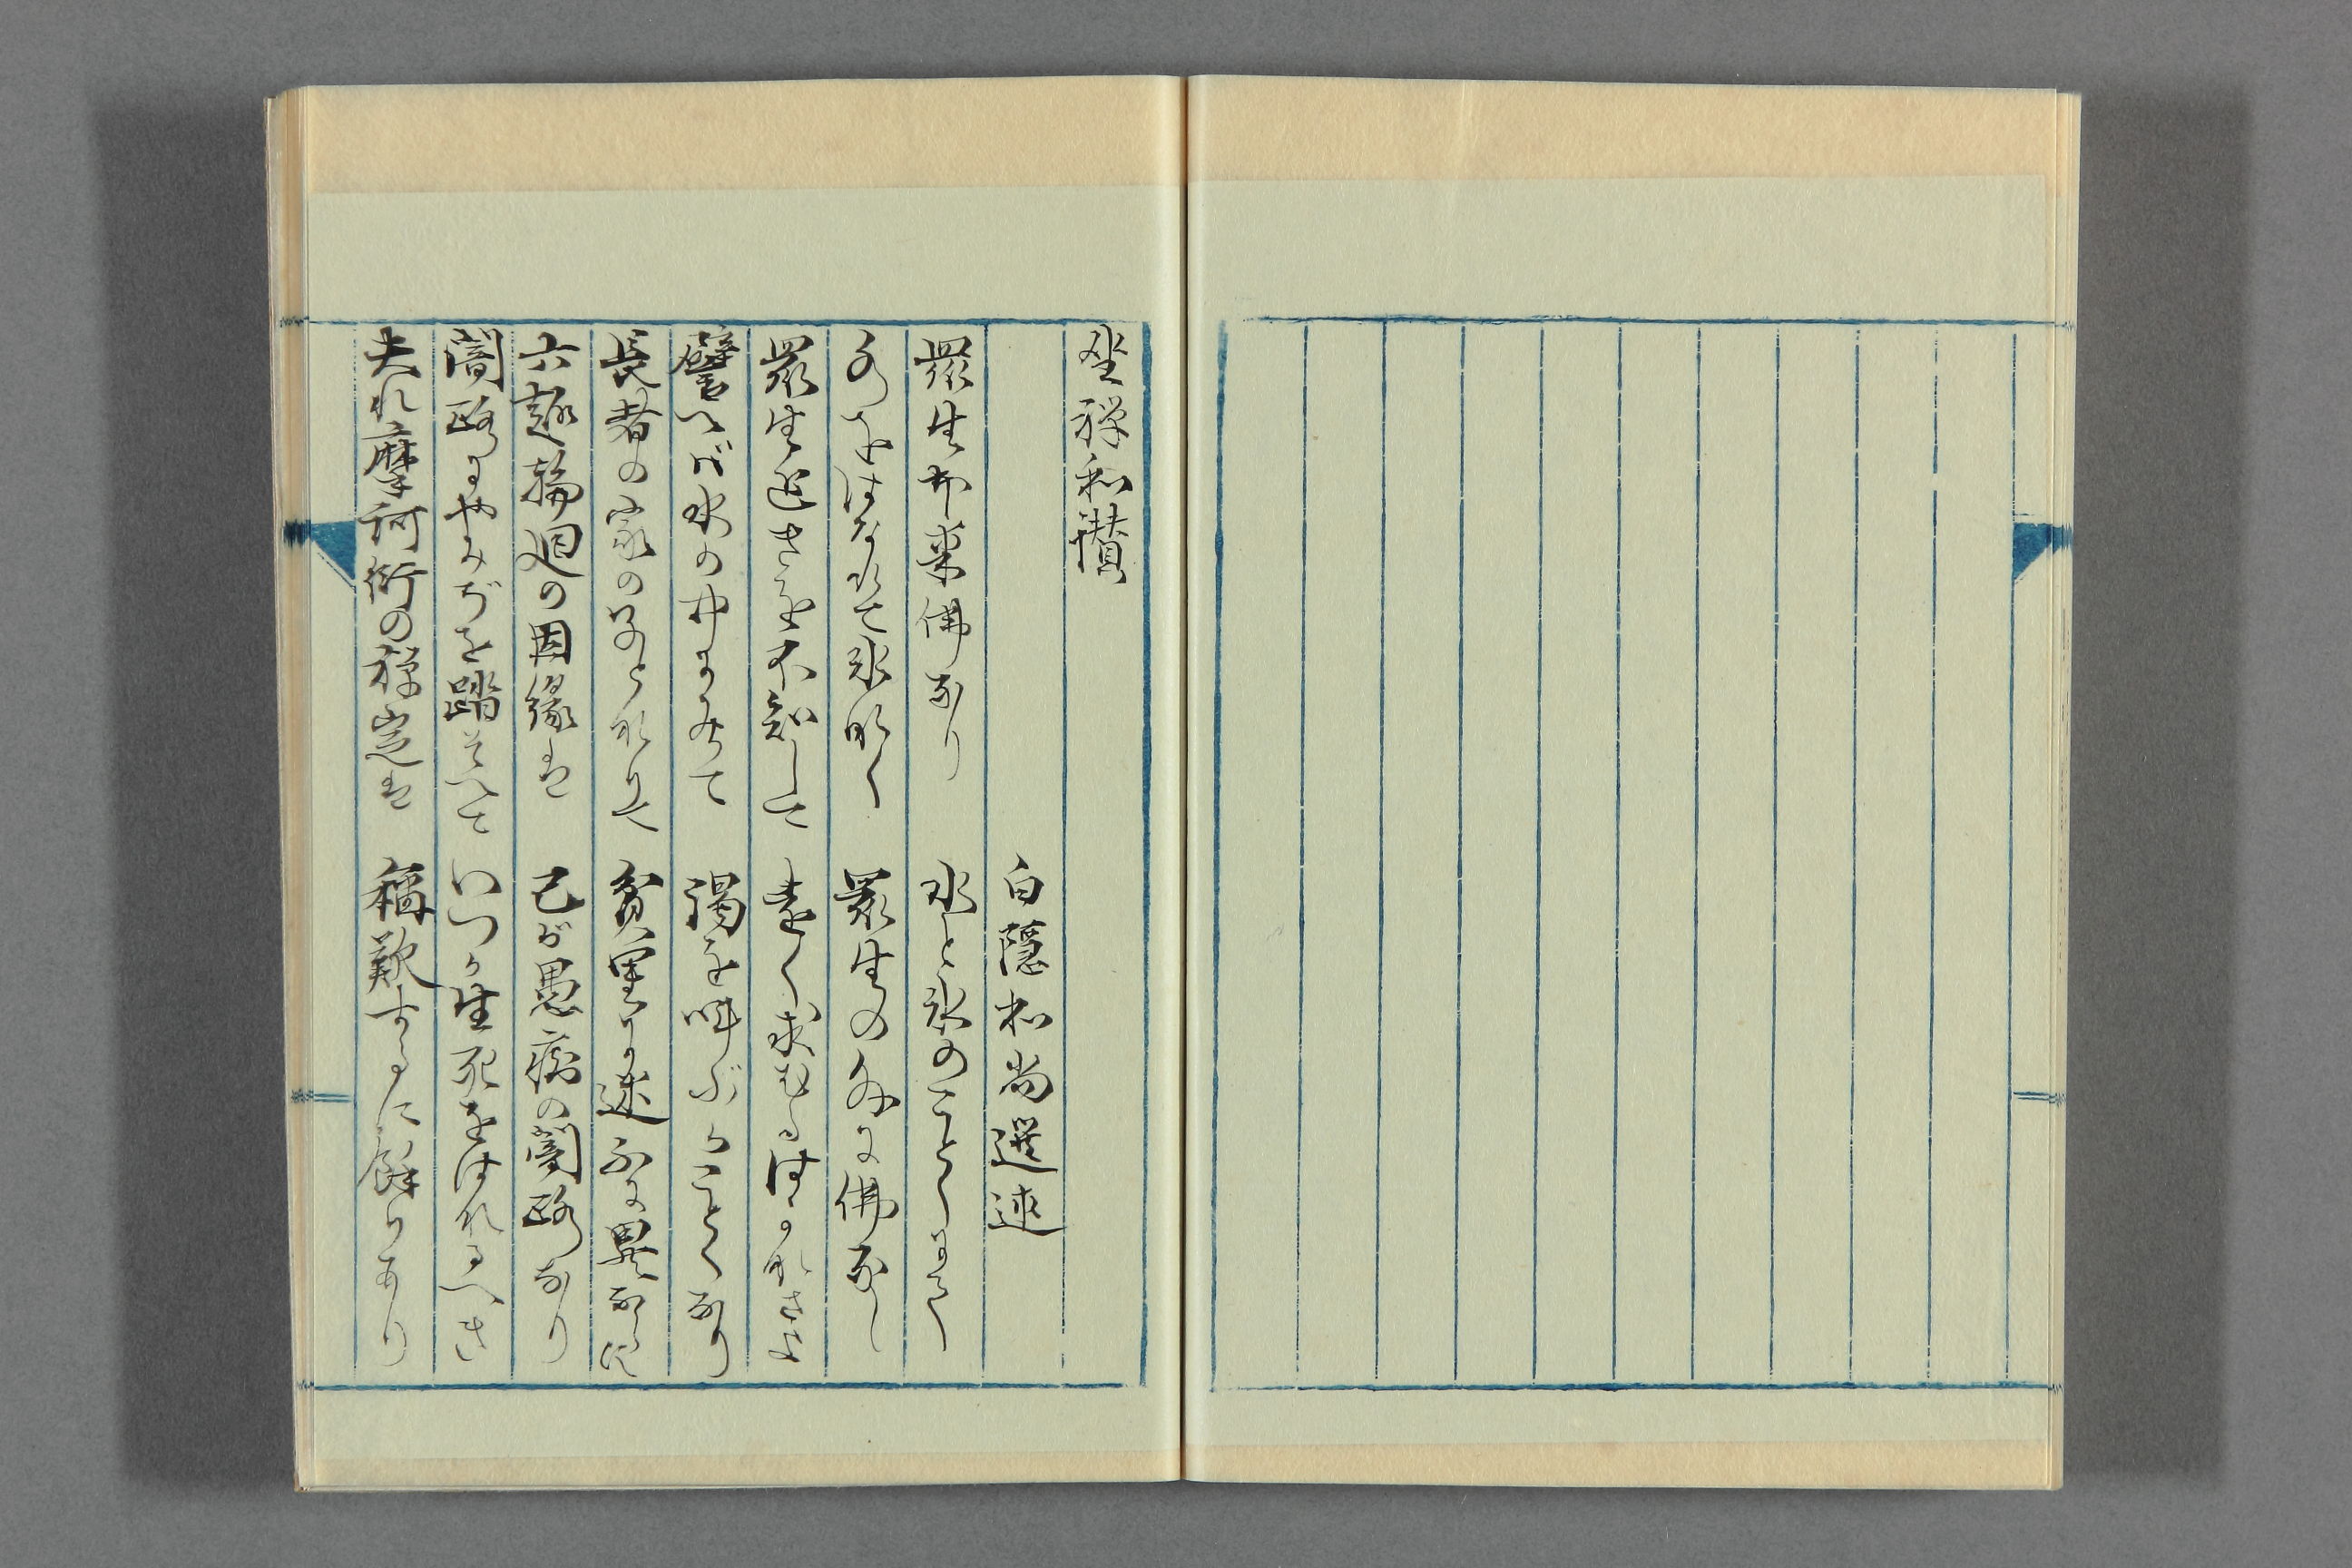 坐禅和讃
白隠和尚選述
衆生本来佛なり　水と氷のことくにて
水をはなれて氷なく　衆生の外に佛なし
衆生近きを不知して　遠く求むるはかなさよ
譬へば水の中に居て　渇を叫ぶかことくなり
長者の家の子となりて　貧里に迷ふに異ならす
六趣輪廻の因縁は　己が愚痴の闇路なり
闇路にやみぢを踏そへて　いつか生死をはなるへき
夫れ摩訶衍の禅定は　稱歎するに餘りあり